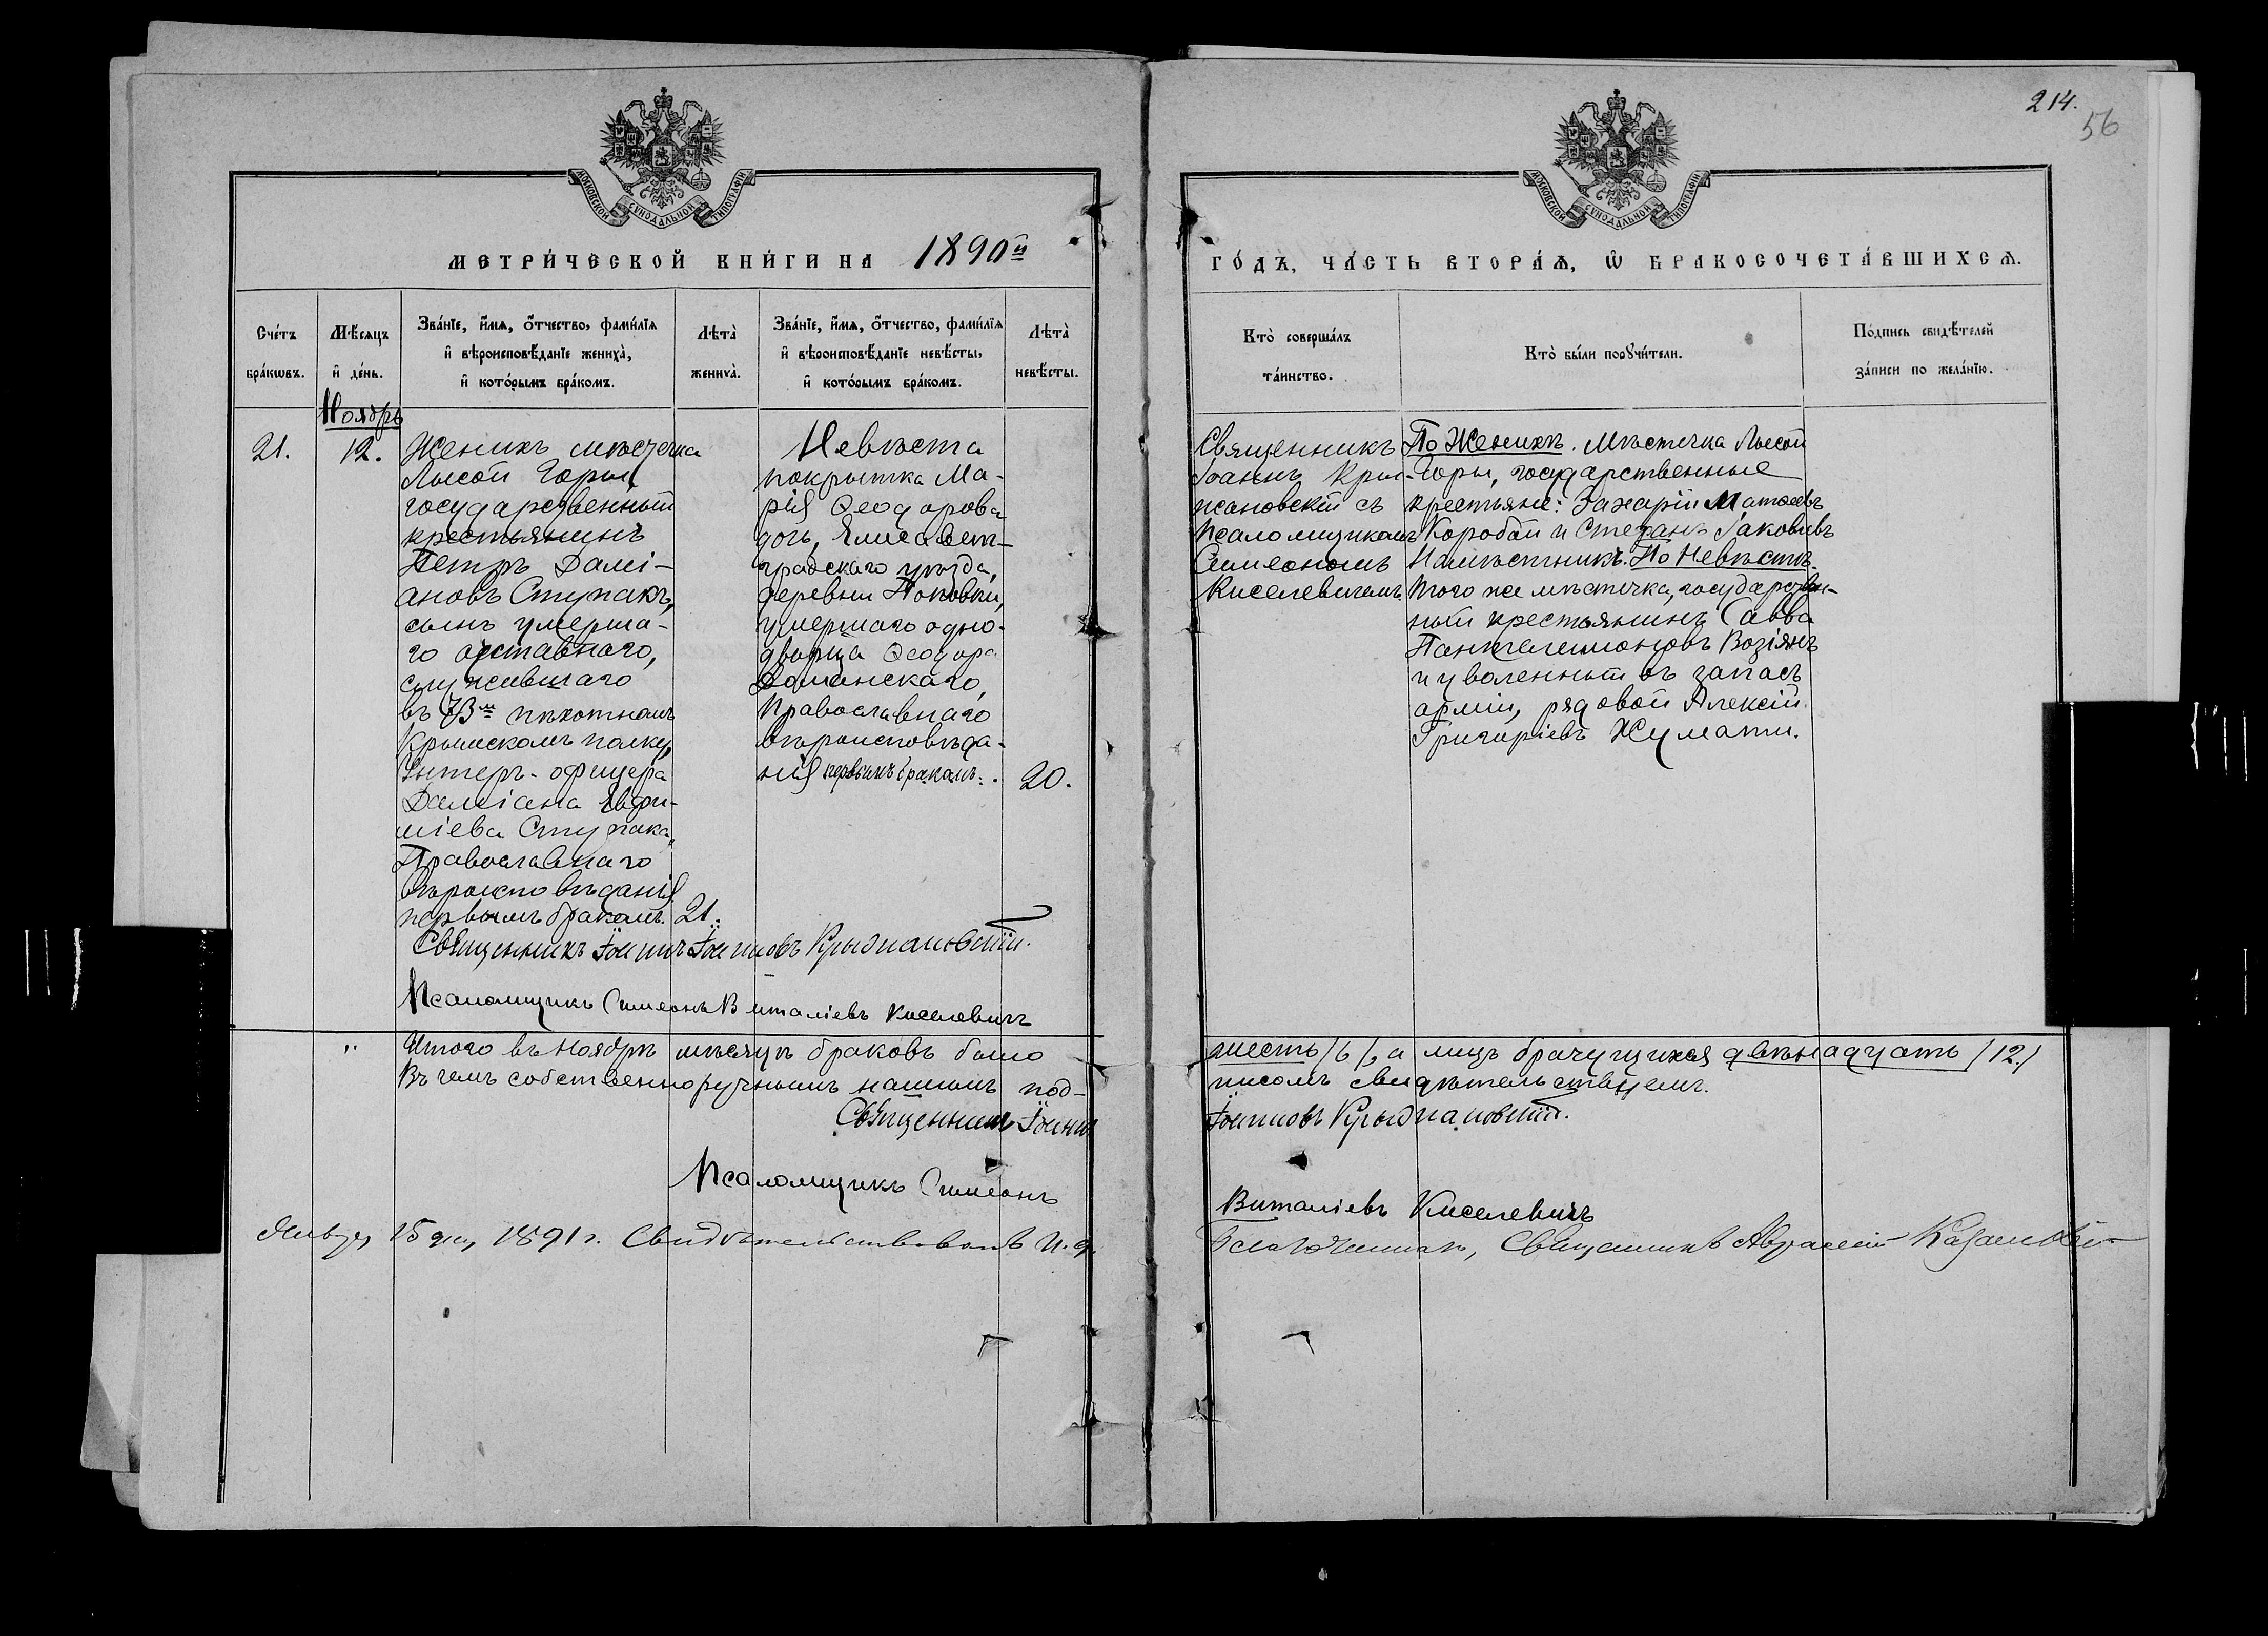 214.
56
МОСКОВСКОЙ СУНОДАЛЬНОЙ ТИПОГРАФІИ
МОСКОВСКОЙ СУНОДАЛЬНОЙ ТИПОГРАФІИ
МЕТРИ́ЧЕСКОЙ КНИ́ГИ НА 1890й
ГО́ДЪ, ЧА́СТЬ ВТОРА́Ѧ, Ѡ҆ БРАКОСОЧЕТА́ВШИХСѦ.
Сче́тъ
бра́кѡвъ.
Мѣ́сѧцъ
и҆ де́нь.
Зва́нїе, и҆́мѧ, ѻ҆́тчество, фами́лїѧ
и҆ вѣроисповѣ́данїе жениха̀,
и҆ кото́рымъ бра́комъ.
Лѣта̀
жениха̀.
Зва́нїе, и҆́мѧ, ѻ҆́тчество, фами́лїѧ
и҆ вѣроисповѣ́данїе невѣ́сты,
и҆ кото́рымъ бра́комъ.
Лѣта̀
невѣ́сты.
Кто̀ соверша́лъ
та́инство.
Кто̀ бы́ли порꙋчи́тели.
По́дпись свидѣ́телей
за́писи по жела́нїю.
Ноябрь
21.
12.
Женихъ мѣстечка
Лысой Горы,
государственный
крестьянинъ
Петръ Дамі-
ановъ Ступакъ,
сынъ умерша-
го отставнаго,
служившаго
въ 73мъ пѣхотномъ
Крымскомъ полку,
Унтеръ-офицера
Даміана Евфи-
міева Ступака,
Православнаго
вѣроисповѣданія
первымъ бракомъ.
21.
Невѣста
покрытка Ма-
рія Ѳеодорова
дочь, Елисавет-
градскаго уѣзда,
деревни
умершаго одно-
дворца Ѳеодора
Доманскаго,
Православнаго
вѣроисповѣда-
нія первымъ бракомъ.
20.
Священникъ
Іоаннъ Кры-
жановскій съ
Псаломщикомъ
Симеономъ
Киселевичемъ.
По Женихѣ. Мѣстечка Лысой
Горы, государственные
крестьяне: Захарій Матѳеевъ
Коробай и Стефанъ Іаковлевъ
Намѣстникъ. По Невѣстѣ.
того же мѣстечка, государствен-
ный крестьянинъ Савва
Пантелеимоновъ Возіянъ
и уволенный въ запасъ
арміи, рядовой Алексій
Григоріевъ Жумати.
Священникъ Іоаннъ Іоанновъ Крыжановскій.
Псаломщикъ Симеонъ Виталіевъ Киселевичъ
" Итого въ Ноябрѣ мѣсяцѣ браковъ было шесть /6/, а лицъ брачущихся двѣнадцать /12/
Въ чемъ собственноручнымъ нашимъ подписомъ свидѣтельствуемъ.
Священникъ Іоаннъ Іоанновъ Крыжановскій.
Псаломщикъ Симеонъ Виталіевъ Киселевичъ
Январ 15 дня 1891 г. Свидѣтельствовалъ И. д. Благочиннаго, Священникъ Казановскій